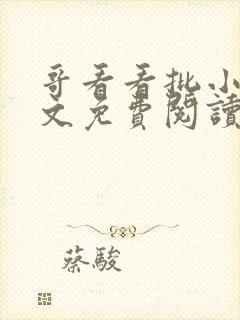 哥看看批小
文免費閱讀
蔡駿